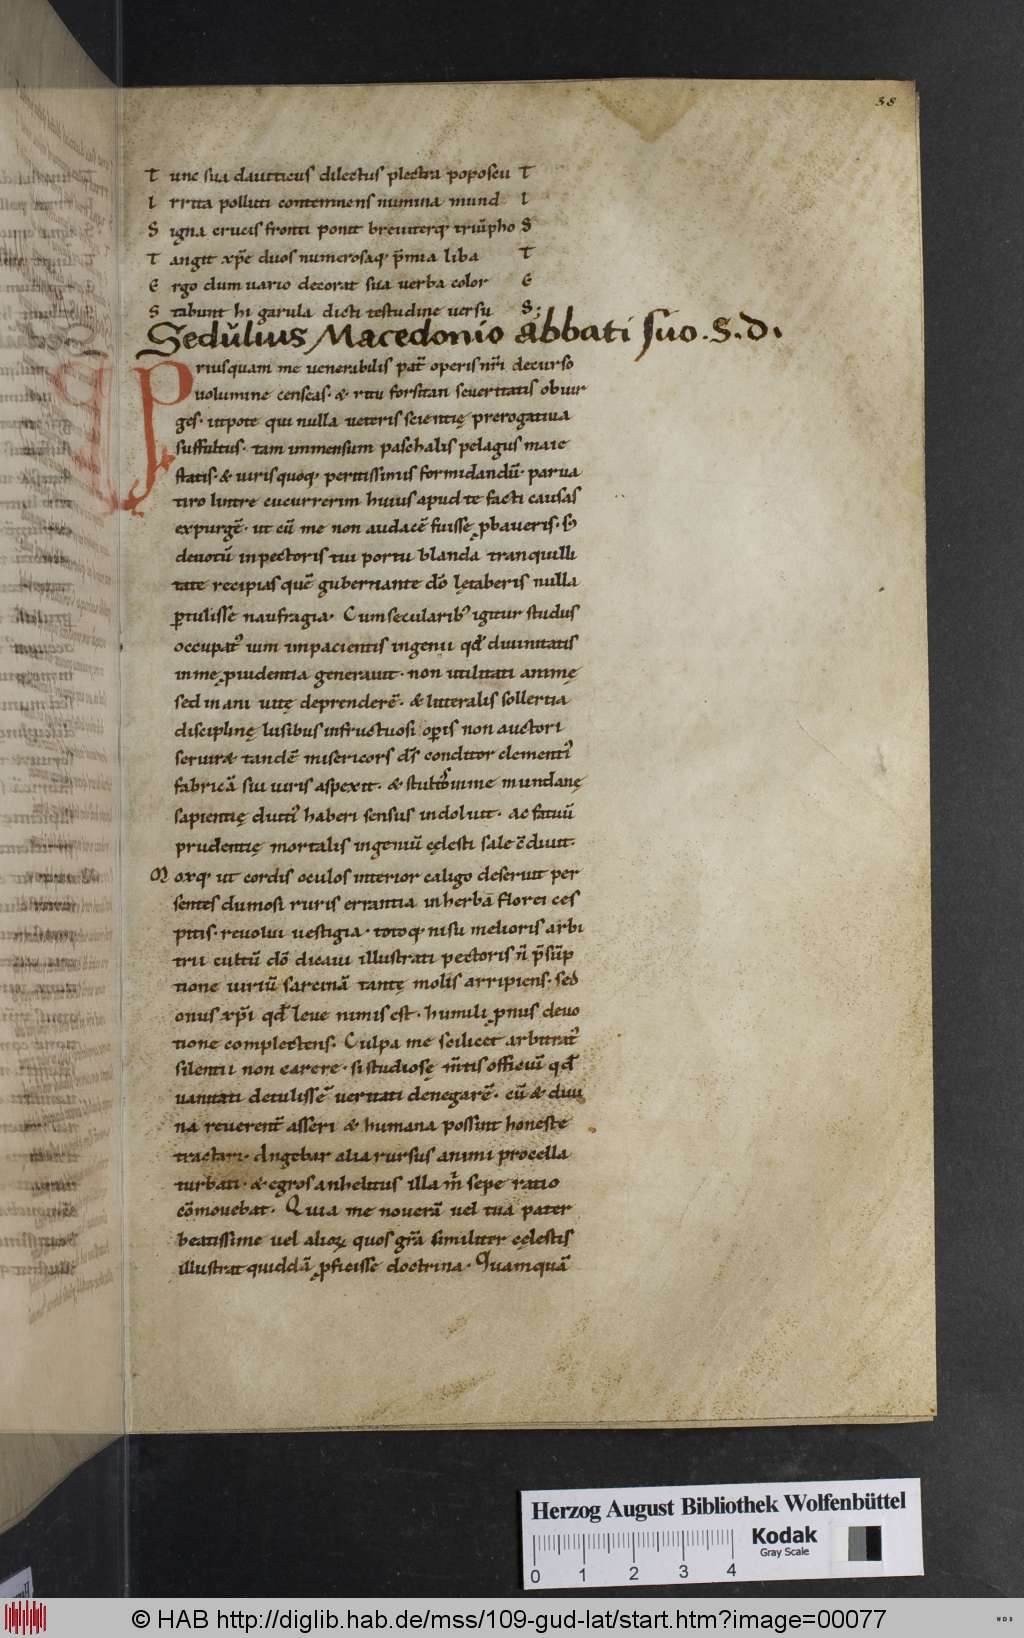 38
T unc sua dauiticus dilectus plectra poposcit T
I rrita polluti contemnens numina mund I
S igna crucis fronti ponit breuiterq; triūpho S
T angit xp̄e duos numerosaq; p̄mia liba T
E rgo dum uario decorat sua uerba color E
S tabunt hi garula dicti testudine uersu S;
Sedulius Macedonio abbati suo. S. D.
Priusquam me uenerabilis pat̄ operis nr̄i decurso
uolumine censeas · & ritu forsitan seueritatis obiur
ges · utpote qui nulla ueteris scientię prerogatiua
suffultus · tam immensum paschalis pelagus maie
statis · & uiris quoq; peritissimis formidandū · parua
tiro lintre cucurrerim huius apud te facti causas
expurgē · ut cū me non audacē fuisse ꝓbaueris · s;
deuotū inpectoris tui portu blanda tranquilli
tate recipias quē gubernante dō lętaberis nulla
ꝑtulisse naufragia · Cum secularib; igitur studiis
occupat' uim impacientis ingenii qđ diuinitatis
in me ꝓuidentia generauit · non utilitati animę
sed inani uitę deprenderē · & litteralis sollertia
disciplinę lusibus infructuosi oꝑis non auctori
seruir& tandē misericors dS conditor clementi'
fabricā sui iuris aspexit · & stultos in me mundanę
sapientię diuti' haberi sensus indoluit · ac fatuū
prudentię mortalis ingeniū cęlesti sale cōdiuit ·
Moxq; ut cordis oculos interior caligo deseruit per
sentes dumosi ruris errantia in herbā florei ces
pitis · reuolui uestigia · totoq; nisu melioris arbi
trii cultū dō dicaui illustrati pectoris n̄ p̄sūp
tione uiriū sarcinā tantę molis arripiens · sed
onus xp̄i qđ leue nimis est · humili ꝓnus deuo
tione complectens · Culpa me scilicet arbitrat'
silentii non carere · si studiosę m̄tis officiū qđ
uanitati detulissē ueritati denegarē · cū & diui
na reuerent̄ asseri & humana possint honeste
tractari · Angebar alia rursus animi procella
turbati · & egros anhelitus illa m̄ sepe ratio
cōmouebat · Quia me nouerā uel tua pater
beatissime uel alioꝝ quos gr̄a similiter cęlestis
illustrat quiddā ꝓficisse doctrina · Quamquā
Herzog August Bibliothek Wolfenbüttel
Kodak
Gray Scale
0 1 2 3 4
© HAB http://diglib.hab.de/mss/109-gud-lat/start.htm?image=00077